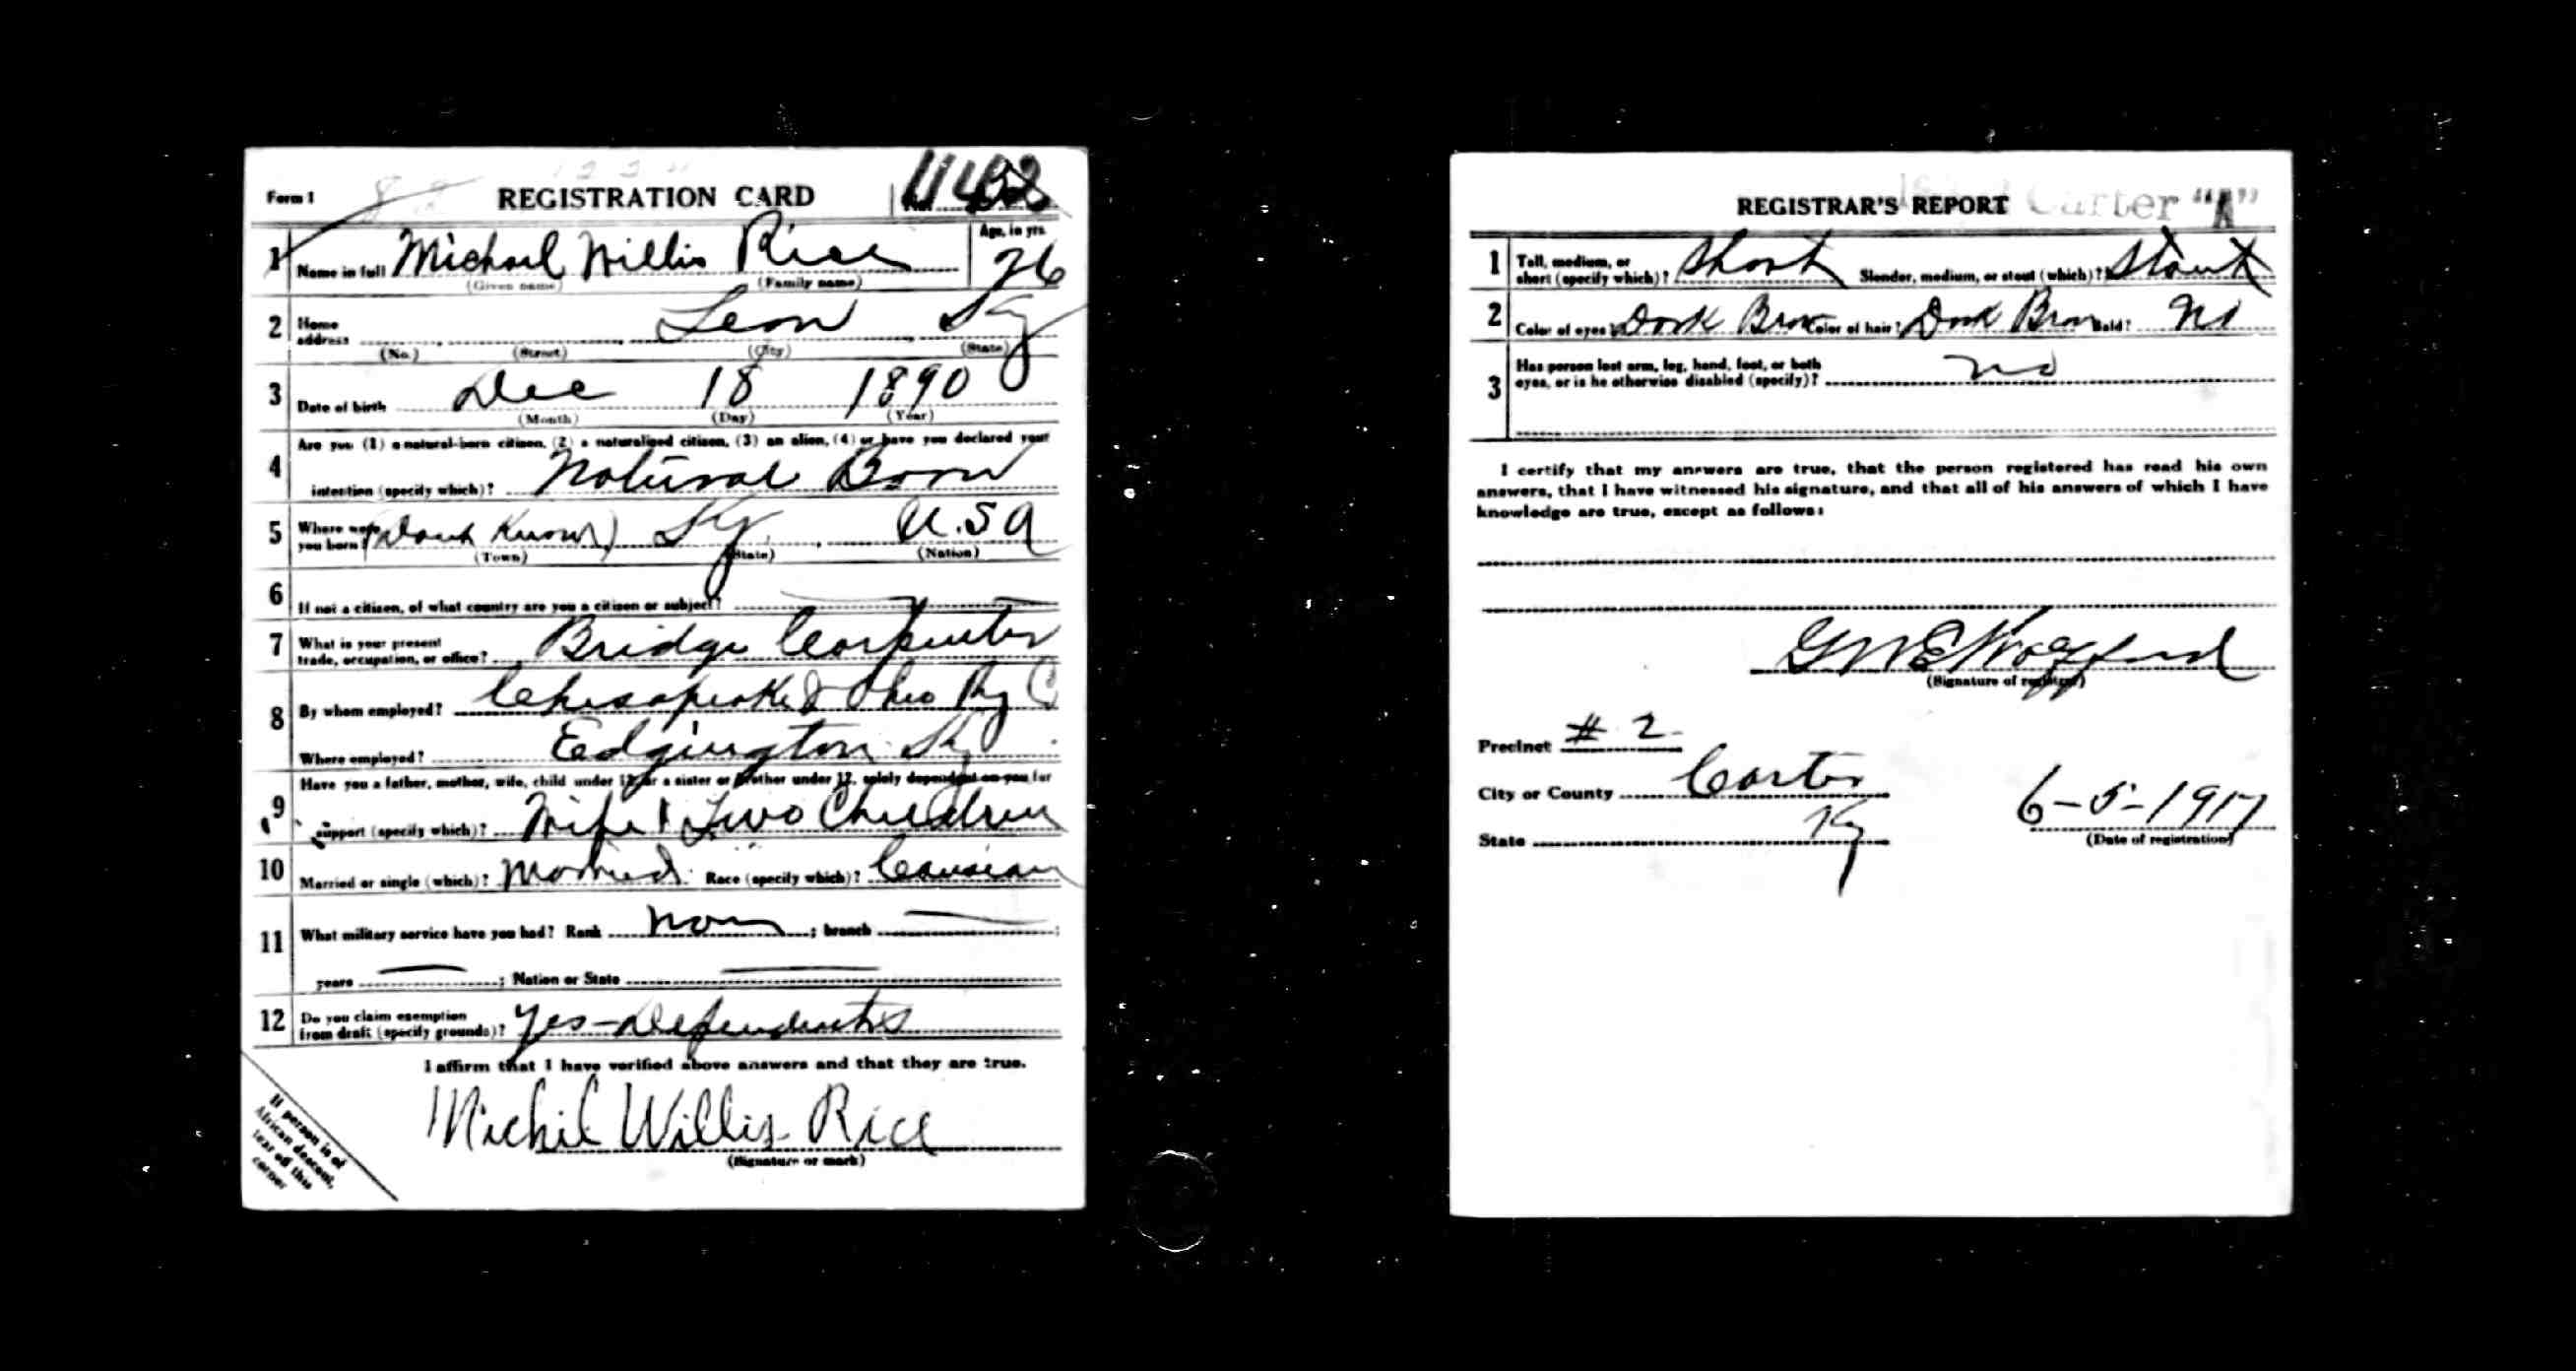 Form 1 REGISTRATION CARD
1 Name in full Michael Willis Rice Age, in yrs. 26
(Given name) (Family name)
2 Home address Leon Ky
(No.) (Street) (City) (State)
3 Date of birth Dec 18 1890
(Month) (Day) (Year)
4 Are you (1) a natural-born citizen, (2) a naturalized citizen, (3) an alien, (4) or have you declared your
intention (specify which)? Natural Born
5 Where were you born? (Dont Know) Ky U.S.A
(Town) (State) (Nation)
6 If not a citizen, of what country are you a citizen or subject?
7 What is your present trade, occupation, or office? Bridge Carpenter
8 By whom employed? Chesapeake & Ohio Ry C
Where employed? Edgington Ky
9 Have you a father, mother, wife, child under 12, or a sister or brother under 12, solely dependent on you for
support (specify which)? Wife & Two Children
10 Married or single (which)? Married Race (specify which)? Causian
11 What military service have you had? Rank non ; branch ;
years ; Nation or State
12 Do you claim exemption from draft (specify grounds)? Yes - Dependents
I affirm that I have verified above answers and that they are true.
Michil Willis Rice
(Signature or mark)
If person is of
African descent,
tear off this
corner
REGISTRAR'S REPORT Carter "A"
1 Tall, medium, or short (specify which)? Short Slender, medium, or stout (which)? Stout
2 Color of eyes? Dark Brow Color of hair? Dark Brow Bald? No
3 Has person lost arm, leg, hand, foot, or both
eyes, or is he otherwise disabled (specify)? no
I certify that my answers are true, that the person registered has read his own
answers, that I have witnessed his signature, and that all of his answers of which I have
knowledge are true, except as follows:
(Signature of registrar)
Precinct # 2
City or County Carter
State Ky 6-5-1917
(Date of registration)